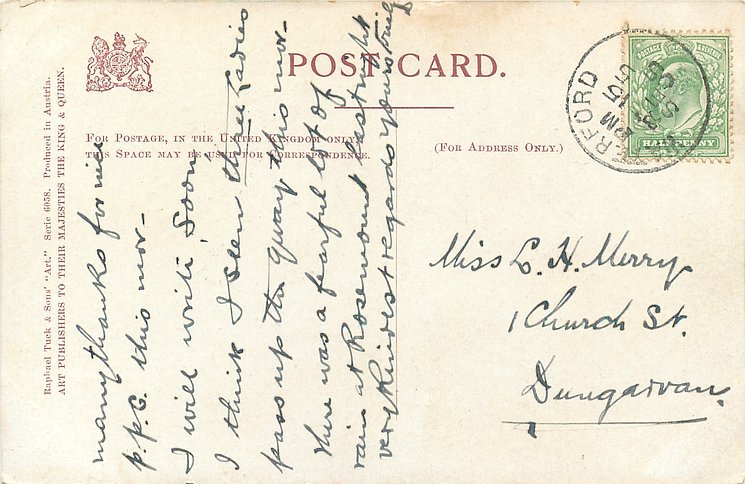 POST CARD.
FOR POSTAGE, IN THE UNITED KINGDOM ONLY,
THIS SPACE MAY BE USED FOR CORRESPONDENCE.
(FOR ADDRESS ONLY.)
Raphael Tuck & Sons' "Art." Serie 6058. Produced in Austria.
ART PUBLISHERS TO THEIR MAJESTIES THE KING & QUEEN.
many thanks for nice
p.p.c. this mor-
I will write soon.
I think I seen three Ladies
pass up the quay this mor-
there was a fearful lot of
rain at Rosemount last night
very Kindest regards yours truly
Miss L. H. Merry
1 Church St.
Dungarvan
POSTAGE REVENUE
HALF PENNY
ERFORD
PM
05